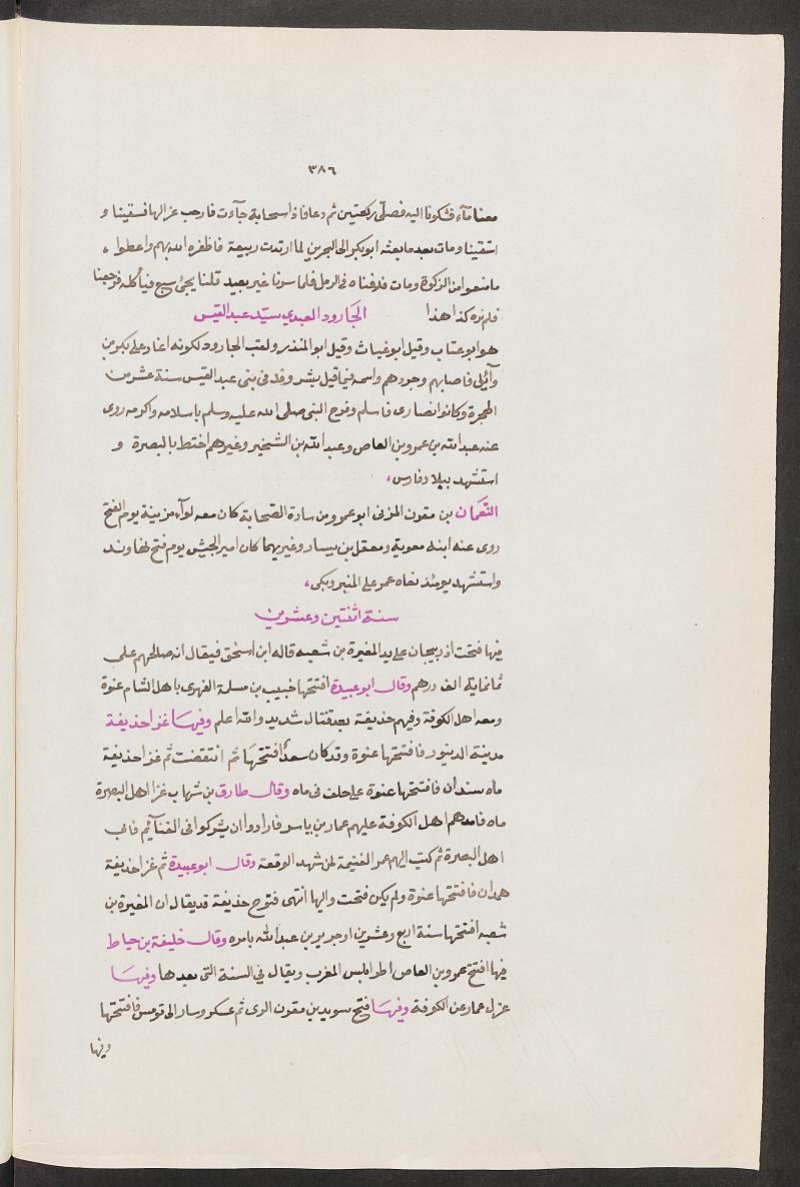 ٣٨٦
معنا مآء فشكونا اليه فصلى ركعتين ثم دعا فاذا سحابة جآءت فارحب عزاليها فسقينا و
استقينا ومات بعد ما بعثه ابوبكر الى البحرين لما ارتدت ربيعة فاظفره الله بهم واعطوا ،
ما منعوا من الزكوة ومات فدفناه فى الرمل فلما سرنا غير بعيد قلنا يجئ سبع فيأكله فرجعنا
فلم نره كذا هذا الجارود العبدي سيّد عبد القيس
هو ابو عتاب وقيل ابو غياث وقيل ابو المنذر ولقب الجارود لكونه اغار على بكر من
وآئل فاصابهم وجردهم واسمه فيما قيل بشر وفد فى بنى عبد القيس سنة عشر من
الهجرة وكانوا نصارى فاسلم وفرح النبى صلى الله عليه وسلم باسلامه واكرمه روى
عنه عبد الله بن عمرو بن العاص وعبد الله بن الشخير وغيرهم اختط بالبصرة و
استشهد ببلاد فارس ،
النّعمان بن مقرن المزنى ابو عمرو من سادة الصحابة كان معه لوآء مزينة يوم الفتح
روى عنه ابنه معوية ومعقل بن يسار وغيرهما كان امير الجيش يوم فتح نهاوند
واستشهد يومئذ نعاه عمر على المنبر وبكى ،
سنة اثنتين وعشرين
فيها فتحت اذربيجان على يد المغيرة بن شعبه قاله ابن اسحٰق فيقال انه صالحهم على
ثمانماية الف درهم وقال ابو عبيدة افتتحها حبيب بن مسلمة الفهرى باهل الشام عنوة
ومعه اهل الكوفة وفيهم حذيفة بعد قتال شديد والله اعلم وفيها غزا حذيفة
مدينة الدينور فافتتحها عنوة وقد كان سعد افتتحها ثم انتقضت ثم غزا حذيفة
ماه سندان فافتتحها عنوة على خلف فى ماه وقال طارق بن شهاب غزا اهل البصرة
ماه فامدهم اهل الكوفة عليهم عمار بن ياسر فارادوا ان يشركوا فى الغنآئم فابى
اهل البصرة ثم كتب اليهم عمر الغنيمة لمن شهد الوقعة وقال ابو عبيدة ثم غزا حذيفة
همدان فافتتحها عنوة ولم يكن فتحت واليها انتهى فتوح حذيفة قد يقال ان المغيرة بن
شعبه افتتحها سنة اربع وعشرين او جرير بن عبد الله بامره وقال خليفة بن خياط
فيها افتتح عمرو بن العاص اطرابلس المغرب ويقال فى السنة التى بعدها وفيها
عزل عمار عن الكوفة وفيها فتح سويد بن مقرن الرى ثم عسكر وسار الى قومس فافتتحها
وفيها